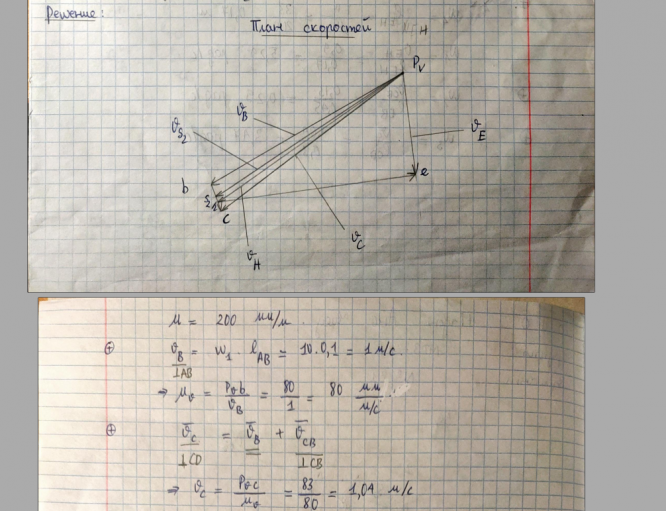 Решение:
План скоростей
н
Pv
ϑB
ϑS2
ϑE
b
e
S2
c
ϑC
ϑH
μ = 200 мм/м
⊕ ϑB = w1 · lAB = 10 · 0,1 = 1 м/с.
⊥AB
⇒ μϑ = Pϑb / ϑB = 80 / 1 = 80 мм / м/с
⊕ ϑ̅C = ϑ̅B + ϑ̅CB
⊥CD ⊥CB
⇒ ϑC = Pϑc / μϑ = 83 / 80 = 1,04 м/с